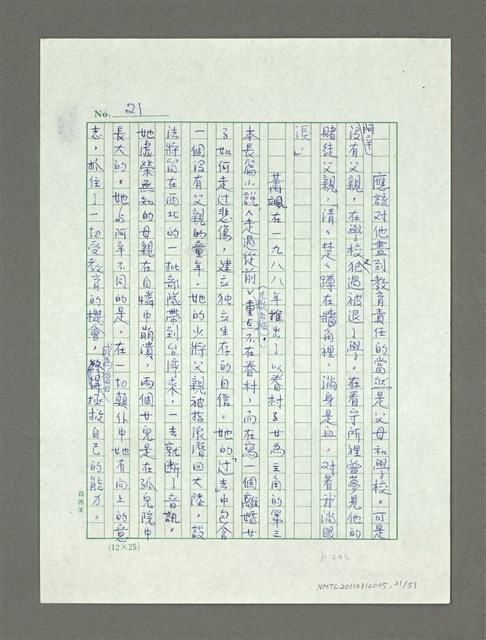 No. 21
應該對他盡到教育責任的當然是父母和學校。可是
阿辛
沒有父親,在學校犯過被退了學。在看守所裡曾夢見他的
賭徒父親,「清清楚楚蹲在牆角裡,滿身是血,對著我滴眼
淚」。
蕭颯在一九八八年推出了以眷村子女為主角的第三
本長篇小說《走過從前》,重點不在眷村,而在寫一個離婚女
子如何走過悲傷,建立獨立生存的自信。她的「過去」中包含
一個沒有父親的童年。她的少將父親被指派潛回大陸,設
法將留在西北的一批部隊帶到台灣來,一去就斷了音訊。
她虛榮無知的母親在自憐中崩潰,兩個女兒是在孤兒院中
長大的。她與阿辛不同的是,在一切顛仆中她有向上的意
志,抓住了一切受教育的機會,終獲得拯救自己的能力。
(12×25)
p.222
NMTL20110310005, 21/51